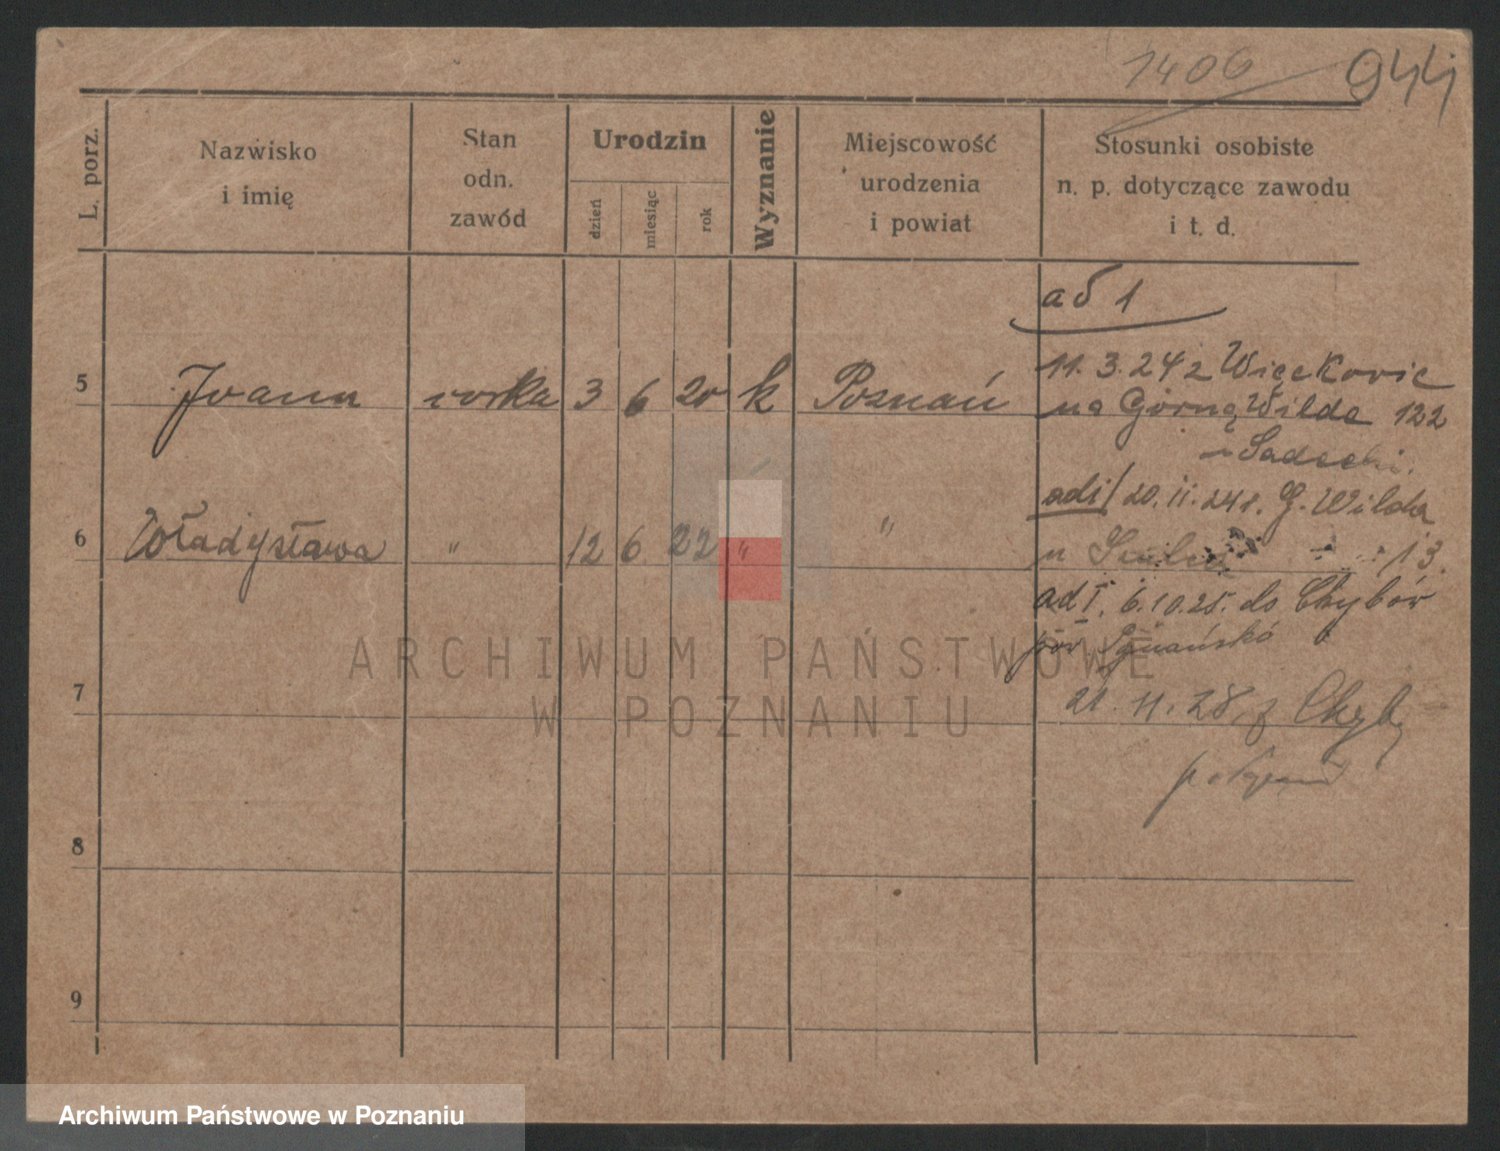 1406 944
L. porz.
Nazwisko
i imię
Stan
odn.
zawód
Urodzin
dzień
miesiąc
rok
Wyznanie
Miejscowość
urodzenia
i powiat
Stosunki osobiste
n. p. dotyczące zawodu
i t. d.
ad 1
5 Joann córka 3 6 20 k Poznań
11. 3. 24 z Więckowic
na Górną Wilda 122
6 Władysława " 12 6 22 " "
ad 1/ 20. 11. 24 r. G. Wilda
13.
ad I. 6.10.25. do Chybów
pow
7
21. 11. 28. z Chyby
8
9
ARCHIWUM PAŃSTWOWE
W POZNANIU
Archiwum Państwowe w Poznaniu